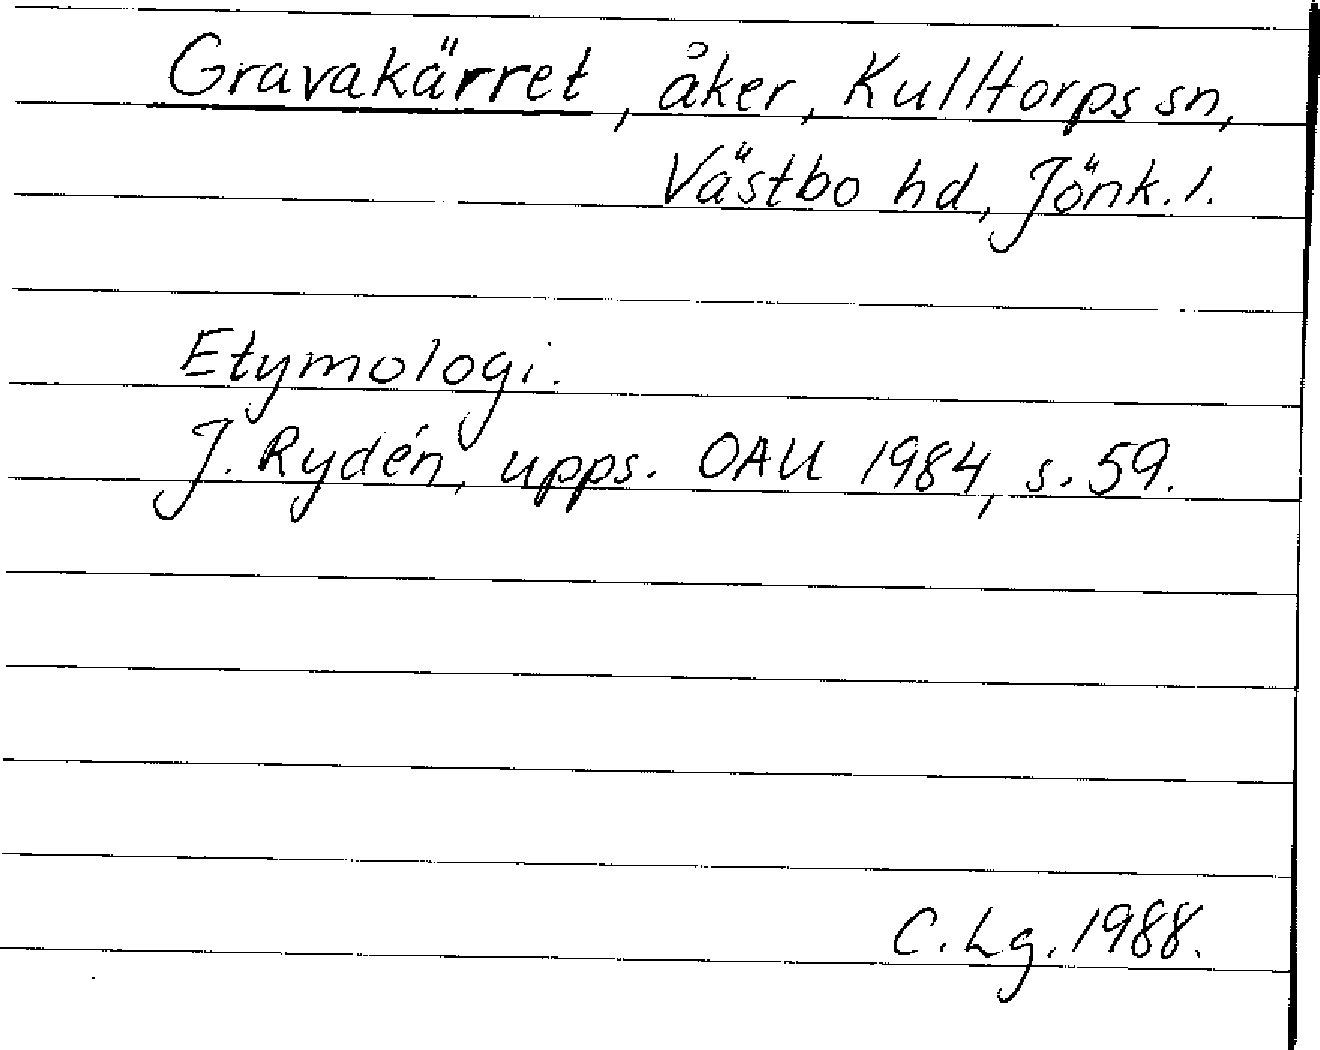 Gravakärret, åker, Kulltorps sn,
Västbo hd, Jönk. l.
Etymologi.
J. Rydén, upps. OAU 1984, s. 59.
C. Lg. 1988.